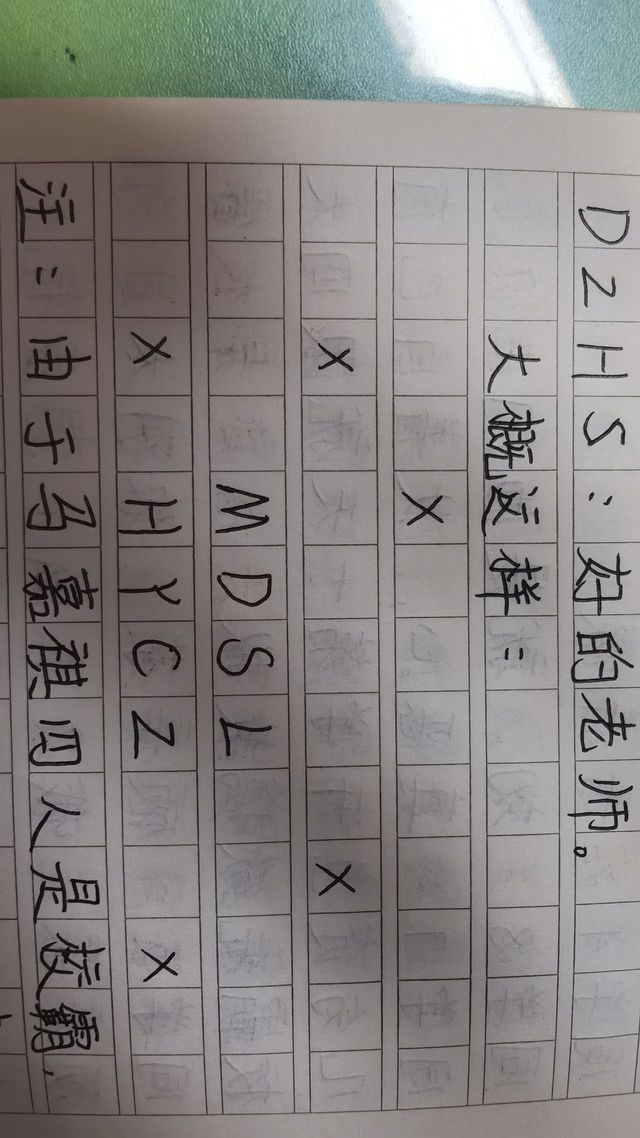 DZHS:好的老师。
大概这样:
X
X X
MDSL
X HYCZ X
注:由于马嘉祺四人是校霸,